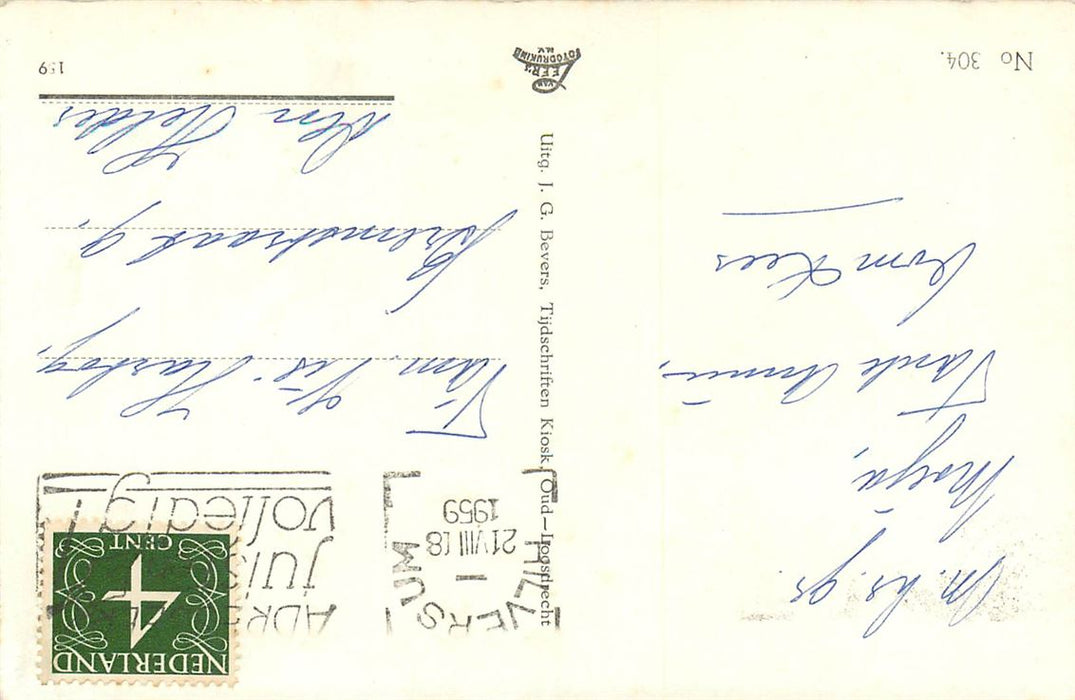 M. hs. gr.
Marja,
Tante Annie,
Oom Kees
No 304.
Uitg. J. G. Bevers, Tijdschriften Kiosk, Oud-Loosdrecht
VAN LEER'S
FOTODRUKIND
N.V.
HILVERSUM
21 VIII 18
1959
volledig!
NEDERLAND
4
CENT
Fam. Hartog,
9,
Den Helder
159